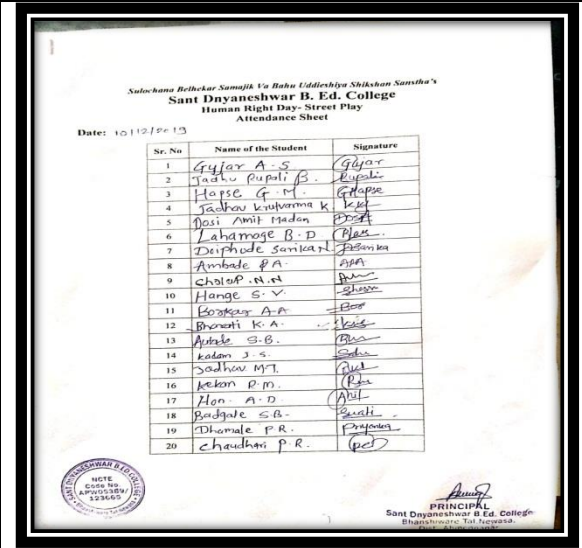 Sulochana Belhekar Samajik Va Bahu Uddieshiya Shikshan Sanstha's
Sant Dnyaneshwar B. Ed. College
Human Right Day- Street Play
Attendance Sheet
Date: 10/12/2019
Sr. No Name of the Student Signature
1 Gujar A.S Gujar
2 Jadhu Rupali B. Rupali
3 Hapse G.M. GHapse
4 Jadhav Krutvarma K.
5 Dosi Amit Madan
6 Lahamage B.D
7 Doiphode Sarika N. Sarika
8 Ambade P A.
9 Chole P.N.N
10 Hange S.V.
11 Borkar A-A Bor
12 Bharati K.A.
13 Autade S.B.
14 Kadam J.S.
15 Jadhav M.T.
16 Kekan P.M.
17 Hon. A.D.
18 Badgale S.B. Swati
19 Dhamale P R. Priyanka
20 Chaudhari P.R.
SANT DNYANESHWAR B.ED. COLLEGE
NCTE
Code No.
123665
PRINCIPAL
Sant Dnyaneshwar B.Ed. College
Bhanshiware Tal.Newasa,
Dist. Ahmednagar